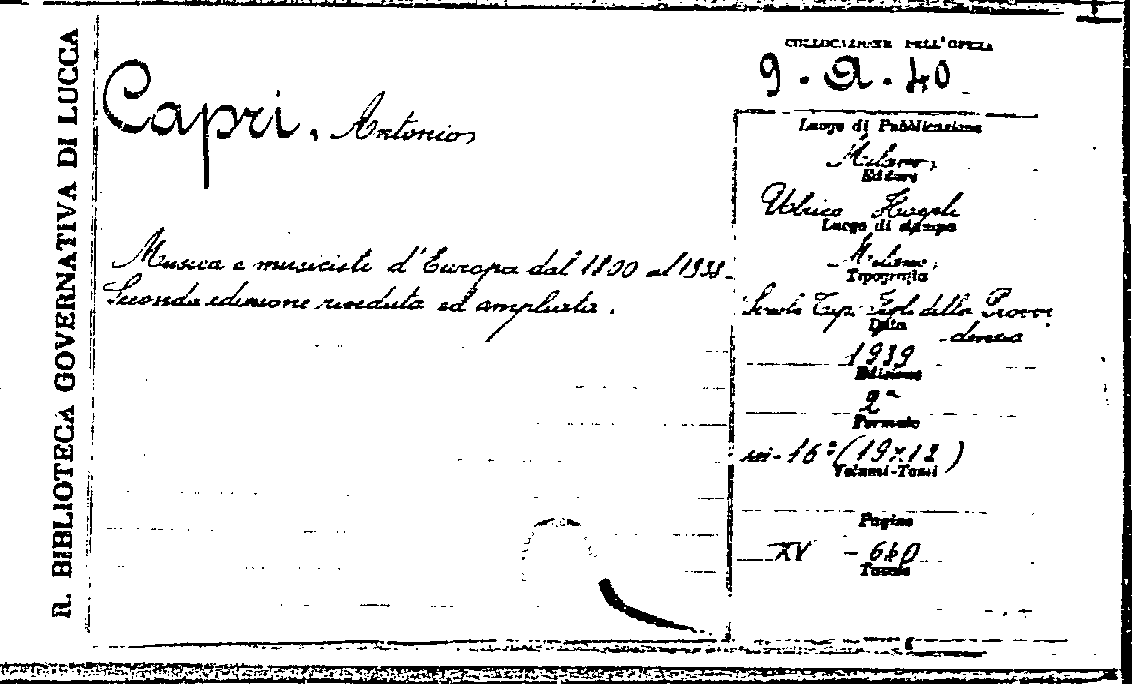 R. BIBLIOTECA GOVERNATIVA DI LUCCA
COLLOCAZIONE DELL'OPERA
9. a. 40
Capri, Antonio
Musica e musicisti d'Europa dal 1800 al 1938.
Seconda edizione riveduta ed ampliata.
Luogo di Pubblicazione
Milano,
Editore
Ulrico Hoepli
Luogo di stampa
Milano,
Tipografia
Scuola Tip. Figli della Provvi
denza
Data
1939
Edizione
2ª
Formato
in-16º (19x12)
Volumi-Tomi
Pagine
XV - 640
Tavole